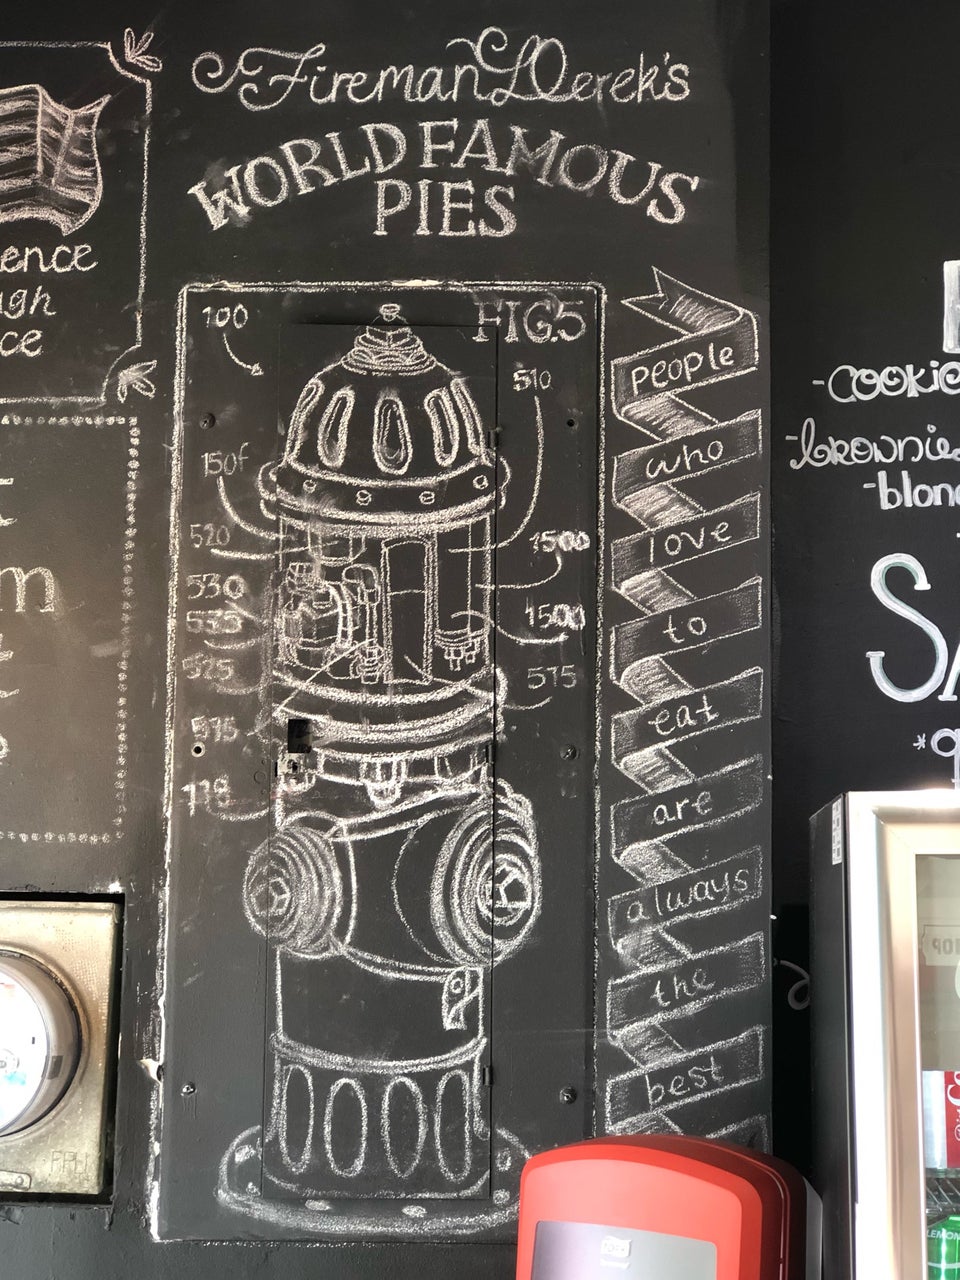 Fireman Derek's
WORLD FAMOUS
PIES
ence
ugh
ce
m
100
FIG.5
510
150f
520
1500
530
535
1500
525
575
575
118
people
who
love
to
eat
are
always
the
best
-COOKIE
-brownies
-blon
SA
LEMON